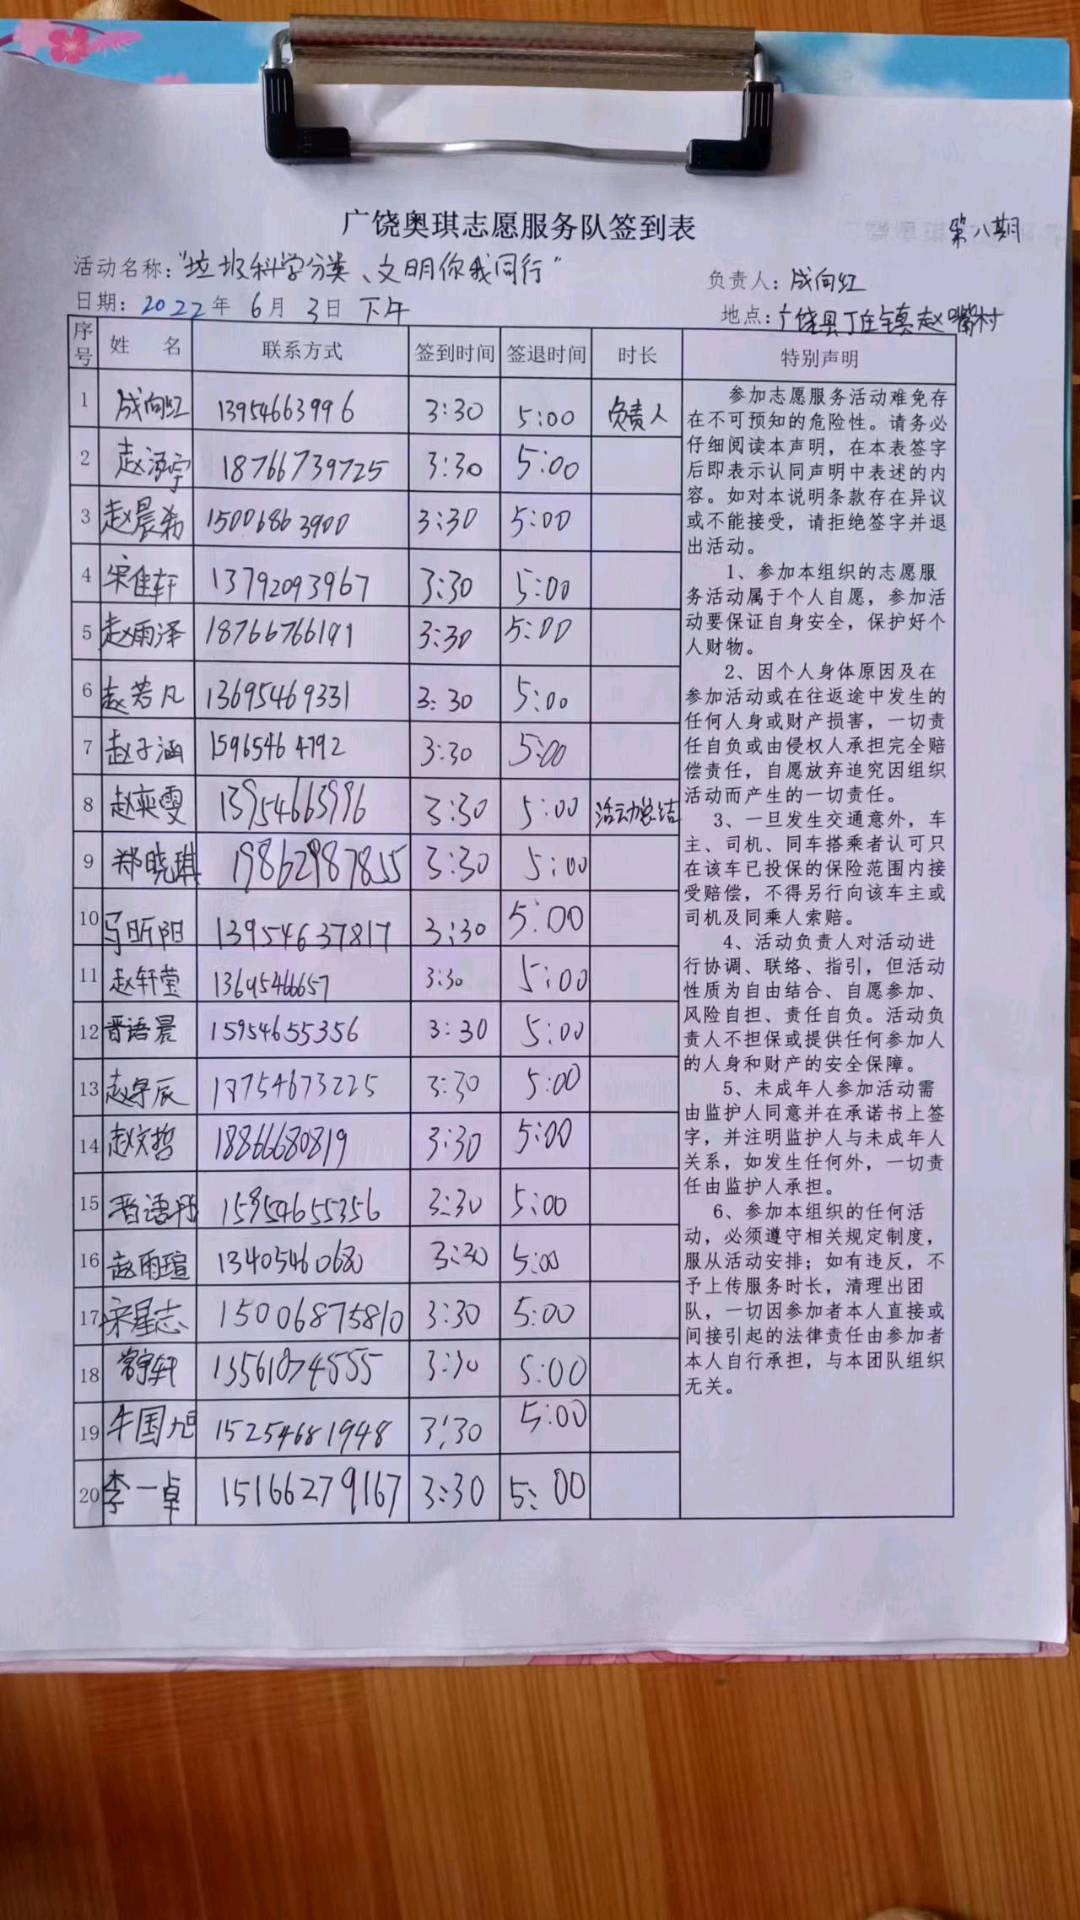 广饶奥琪志愿服务队签到表
第八期
活动名称："垃圾科学分类、文明你我同行"
负责人：成向红
日期：2022年 6月 3日 下午
地点：广饶县丁庄镇赵嘴村
序号 姓 名 联系方式 签到时间 签退时间 时长 特别声明
1 成向红 13954663996 3:30 5:00 负责人
2 赵泓宇 18766739725 3:30 5:00
3 赵晨希 15006863900 3:30 5:00
4 宋佳轩 13792093967 3:30 5:00
5 赵雨泽 18766766191 3:30 5:00
6 赵若凡 13695469331 3:30 5:00
7 赵子涵 15965464792 3:30 5:00
8 赵奕雯 13954663996 3:30 5:00 活动总结
9 郑晓琪 19862987855 3:30 5:00
10 马昕阳 13954637817 3:30 5:00
11 赵轩莹 13695466657 3:30 5:00
12 晋语晨 15954655356 3:30 5:00
13 赵宇辰 13754673225 3:30 5:00
14 赵文哲 18866680819 3:30 5:00
15 晋语彤 15954655356 3:30 5:00
16 赵雨瑄 13405460680 3:30 5:00
17 宋星志 15006875810 3:30 5:00
18 常宇轩 13561074555 3:30 5:00
19 牛国旭 15254681948 3:30 5:00
20 李一卓 15166279167 3:30 5:00
参加志愿服务活动难免存
在不可预知的危险性。请务必
仔细阅读本声明，在本表签字
后即表示认同声明中表述的内
容。如对本说明条款存在异议
或不能接受，请拒绝签字并退
出活动。
1、参加本组织的志愿服
务活动属于个人自愿，参加活
动要保证自身安全，保护好个
人财物。
2、因个人身体原因及在
参加活动或在往返途中发生的
任何人身或财产损害，一切责
任自负或由侵权人承担完全赔
偿责任，自愿放弃追究因组织
活动而产生的一切责任。
3、一旦发生交通意外，车
主、司机、同车搭乘者认可只
在该车已投保的保险范围内接
受赔偿，不得另行向该车主或
司机及同乘人索赔。
4、活动负责人对活动进
行协调、联络、指引，但活动
性质为自由结合、自愿参加、
风险自担、责任自负。活动负
责人不担保或提供任何参加人
的人身和财产的安全保障。
5、未成年人参加活动需
由监护人同意并在承诺书上签
字，并注明监护人与未成年人
关系，如发生任何外，一切责
任由监护人承担。
6、参加本组织的任何活
动，必须遵守相关规定制度，
服从活动安排；如有违反，不
予上传服务时长，清理出团
队，一切因参加者本人直接或
间接引起的法律责任由参加者
本人自行承担，与本团队组织
无关。